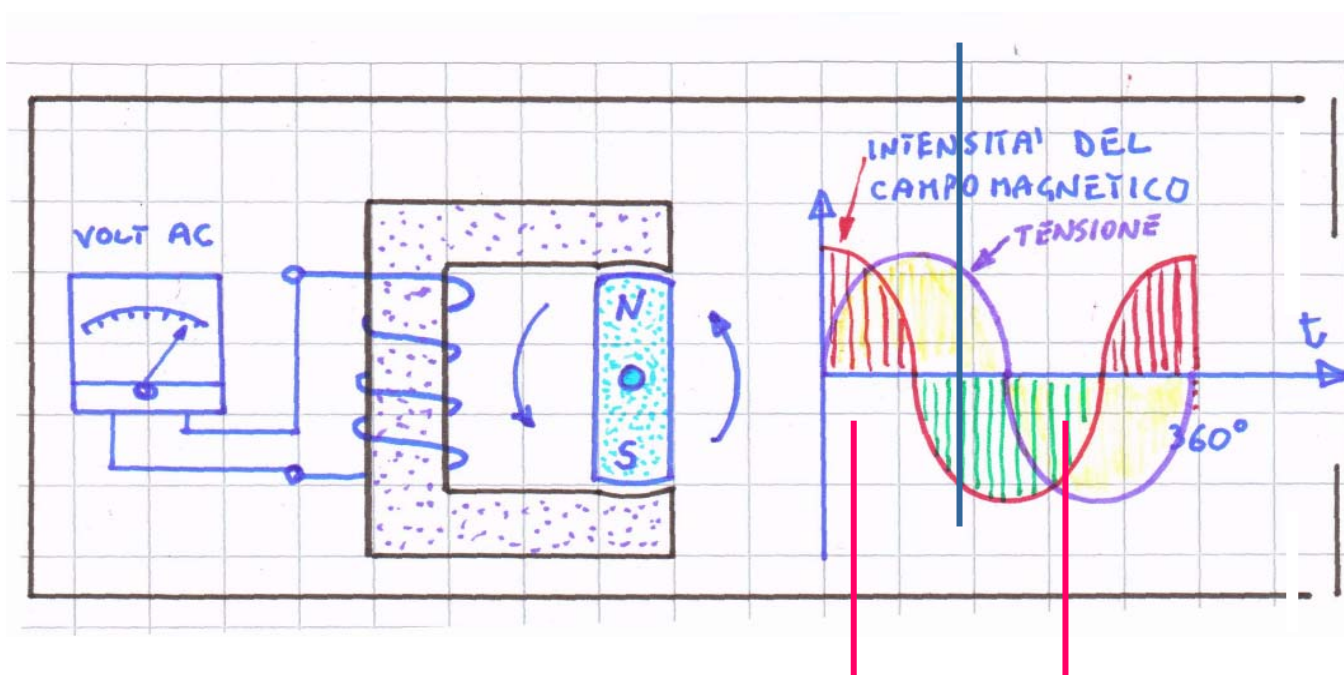 VOLT AC
N
S
INTENSITA' DEL
CAMPO MAGNETICO
TENSIONE
t
360°